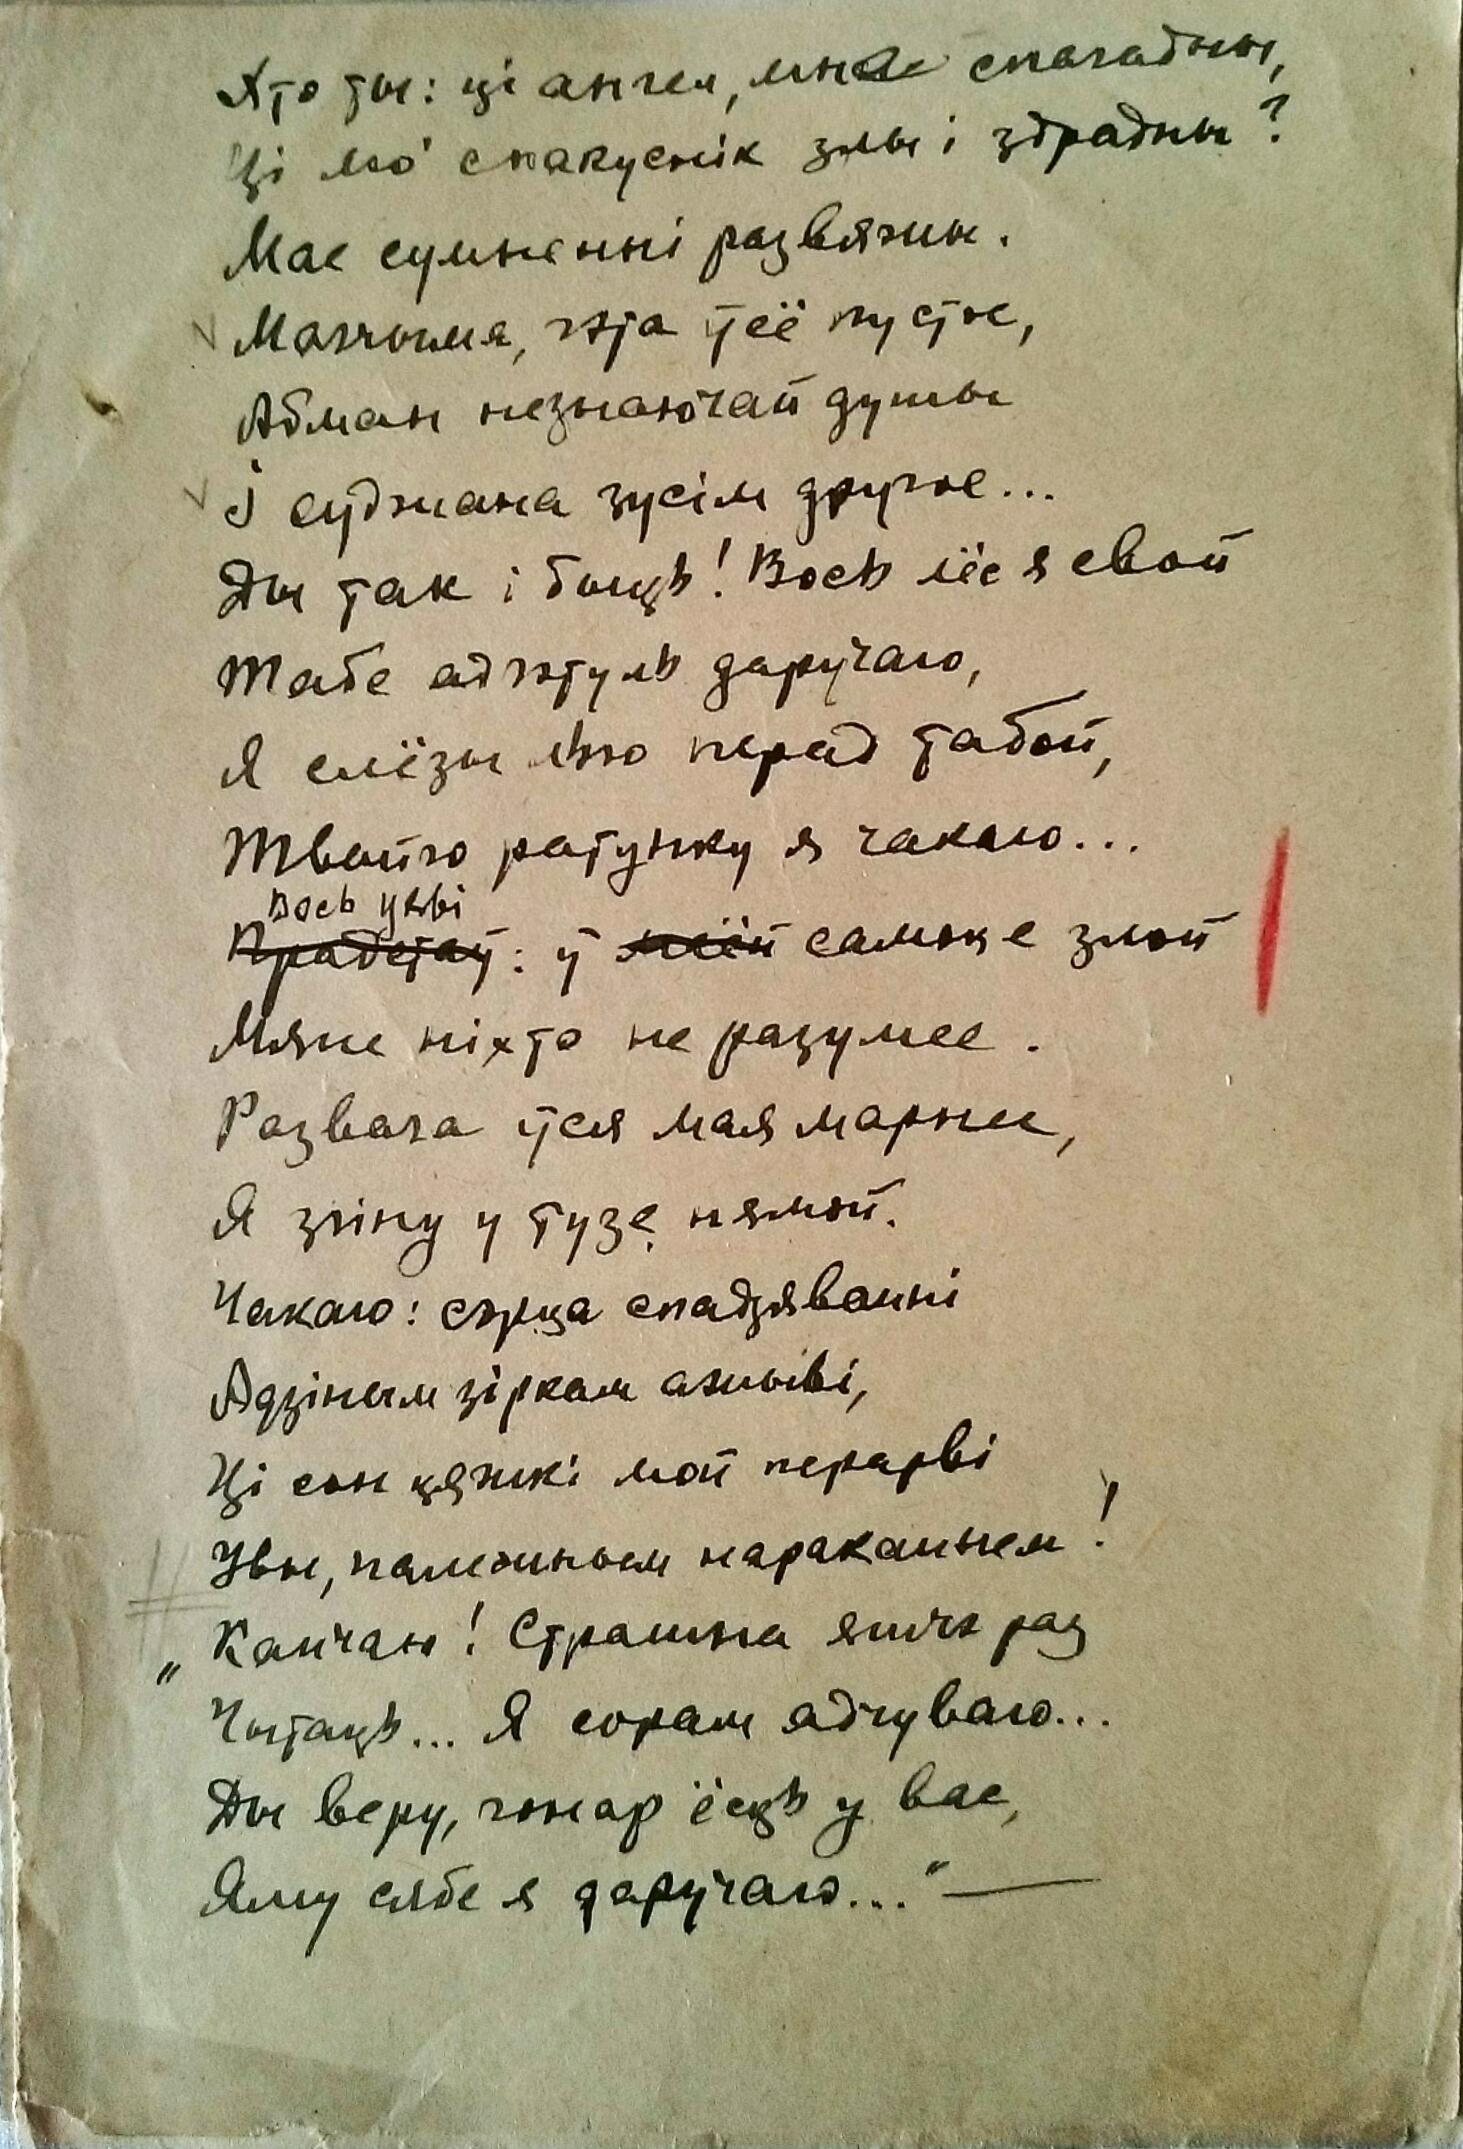 Хто ты: ці ангел, мне спагадны,
Ці мо' спакуснік злы і здрадны?
Мае сумненні развяжы.
Магчыма, гэта ўсё пустое,
Абман незнаючай душы
І суджана зусім другое...
Ды так і быць! Вось лёс я свой
Табе адгэтуль даручаю,
Я слёзы лью перад табой,
Твайго ратунку я чакаю...
Вось уяві
Прадстаў: ў маёй самоце злой
Мяне ніхто не разумее.
Развага ўся мая марнее,
Я згіну у тузе нямой.
Чакаю: сэрца спадзяванні
Адзіным зіркам ажыві,
Ці сон цяжкі мой перарві
Увы, належным нараканнем!
„Канчаю! Страшна яшчэ раз
Чытаць... Я сорам адчуваю...
Ды веру, гонар ёсць у вас,
Яму сябе я даручаю..." —